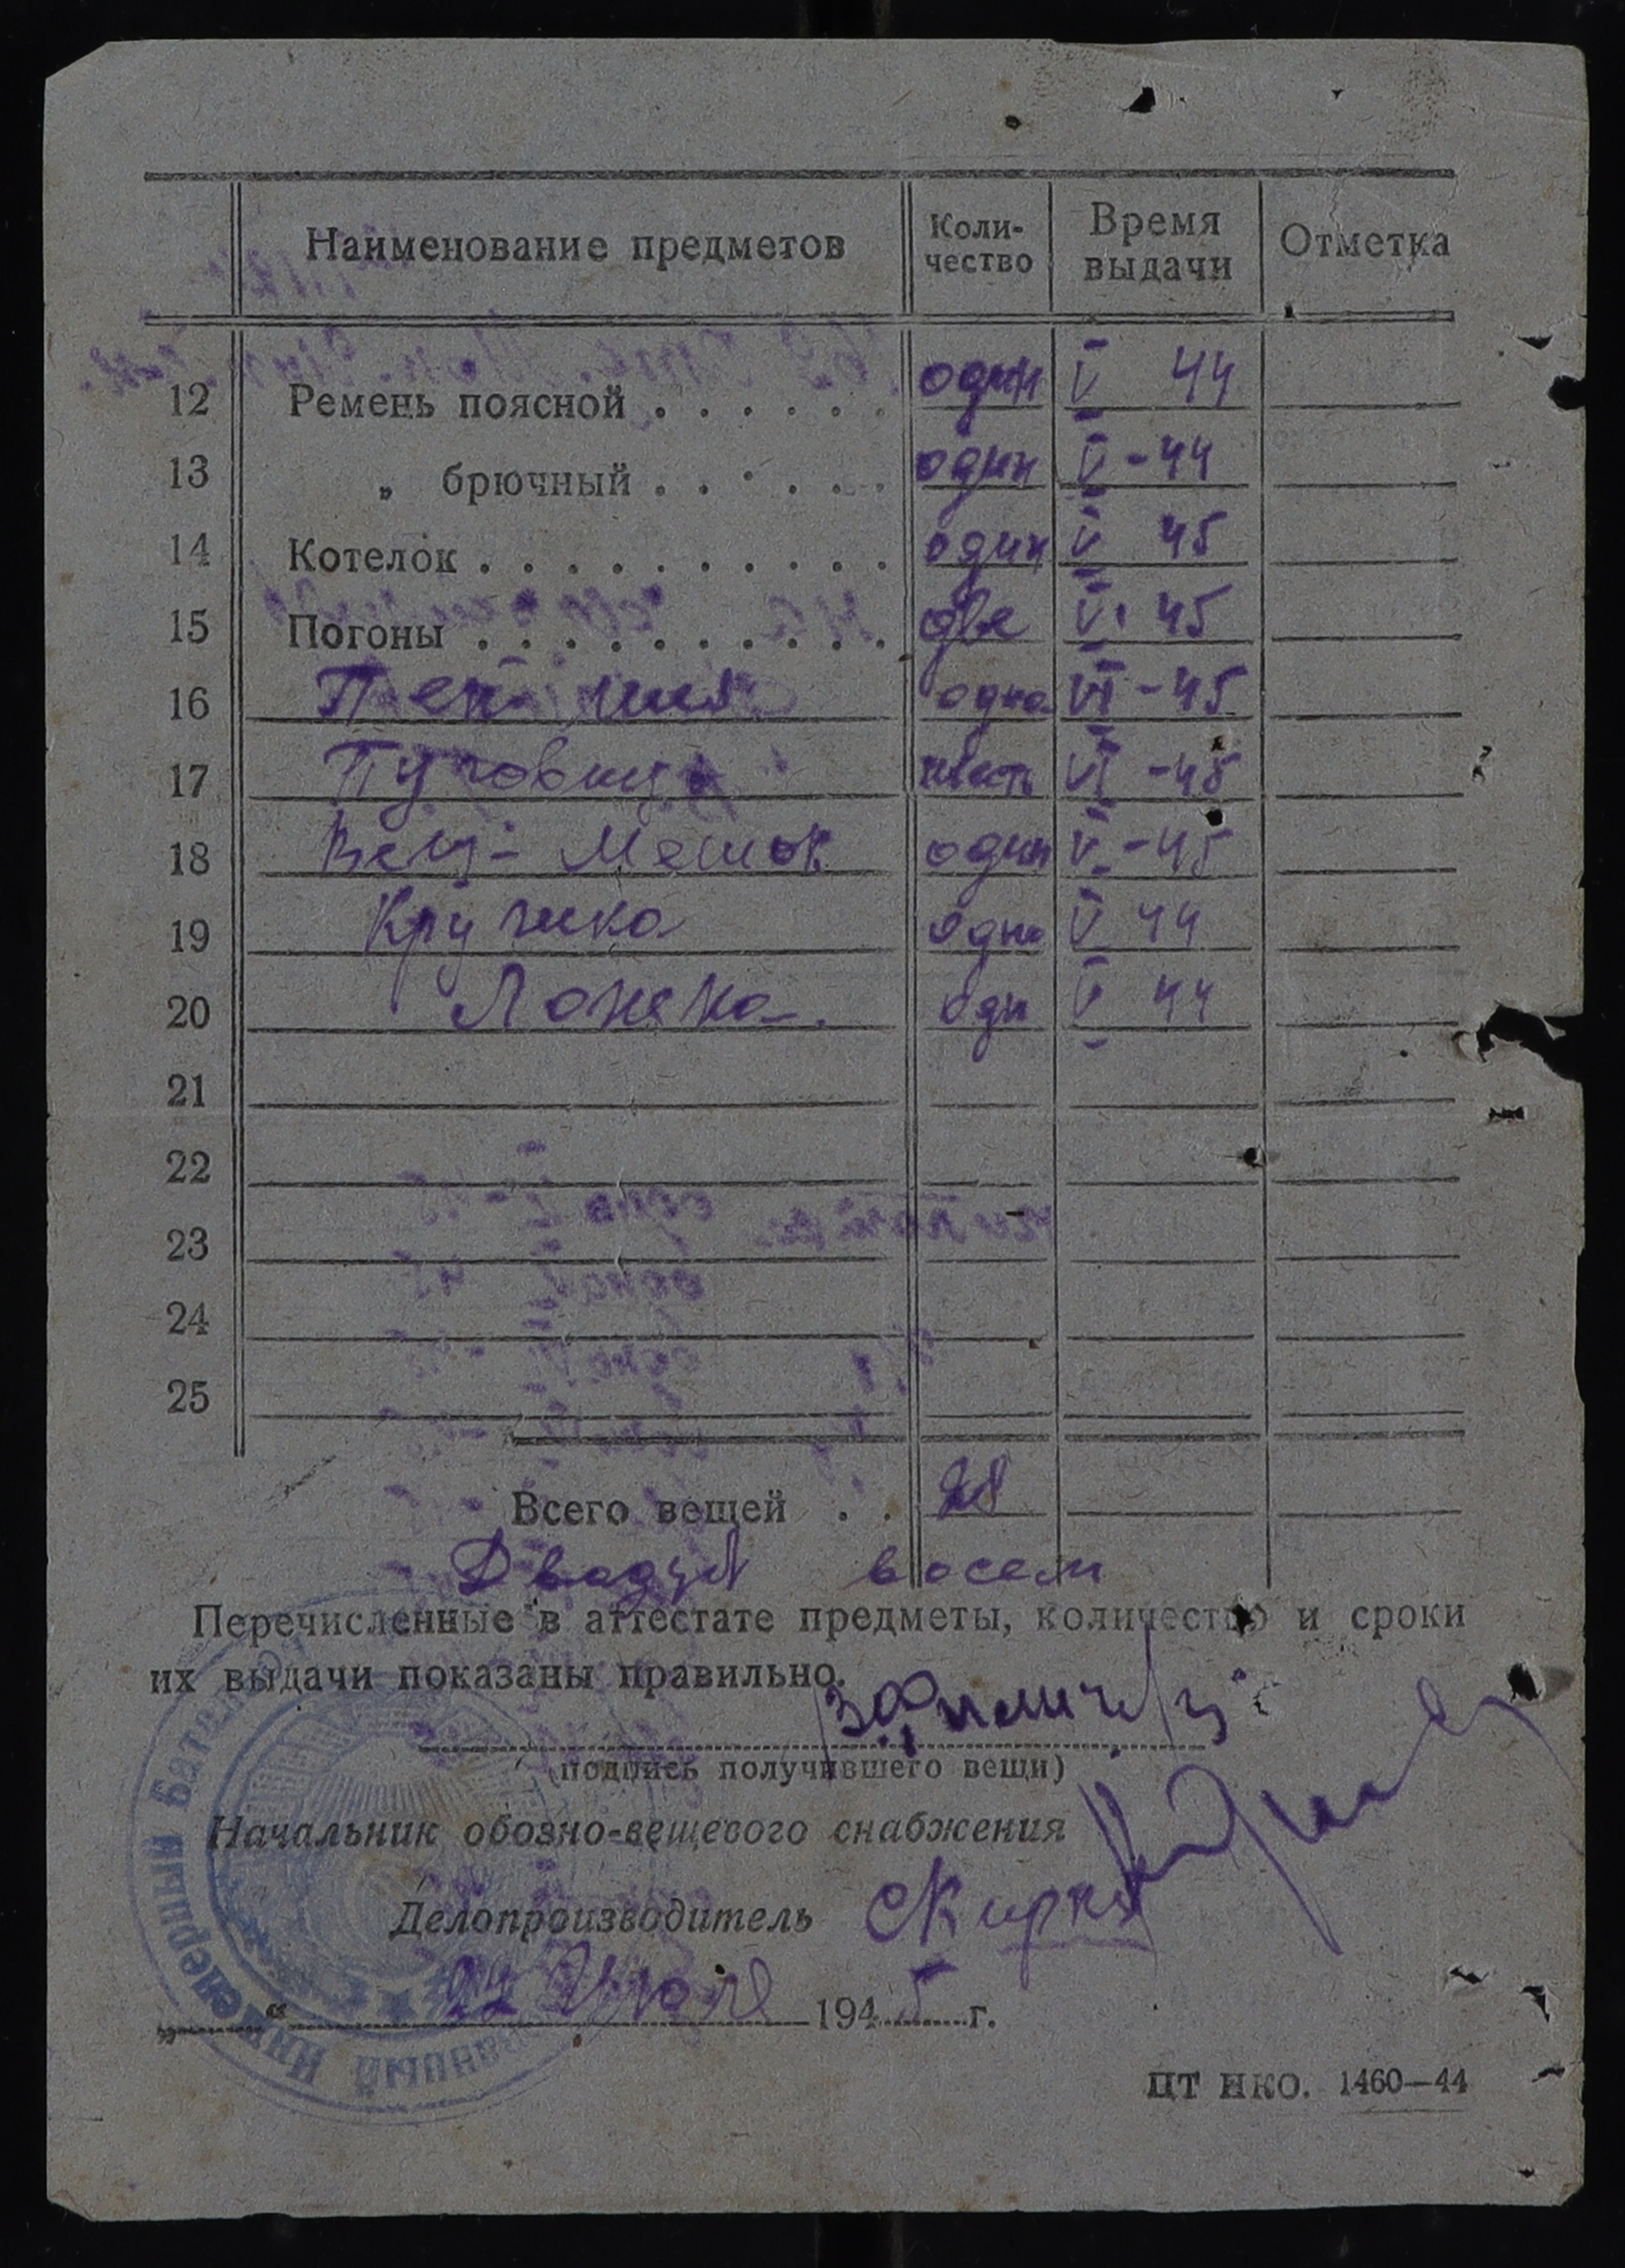 Наименование предметов Коли-чество Время выдачи Отметка
12 Ремень поясной . . . . . . один V 44
13 „ брючный . . . . . . один V-44
14 Котелок . . . . . . . . . . . один V 45
15 Погоны . . . . . . . . . . . две VI 45
16 одна VI-45
17 Пуговиц шесть VI-45
18 Вещ-Мешок один V-45
19 Кружка одна V 44
20 Ложка. одн V 44
21
22
23
24
25
Всего вещей . . 28
Двадцат восем
Перечисленные в аттестате предметы, количество и сроки
их выдачи показаны правильно.
(подпись получившего вещи)
Начальник обозно-вещевого снабжения
Делопроизводитель
„ “ 22 Июля 1945 г.
ЦТ НКО. 1460—44